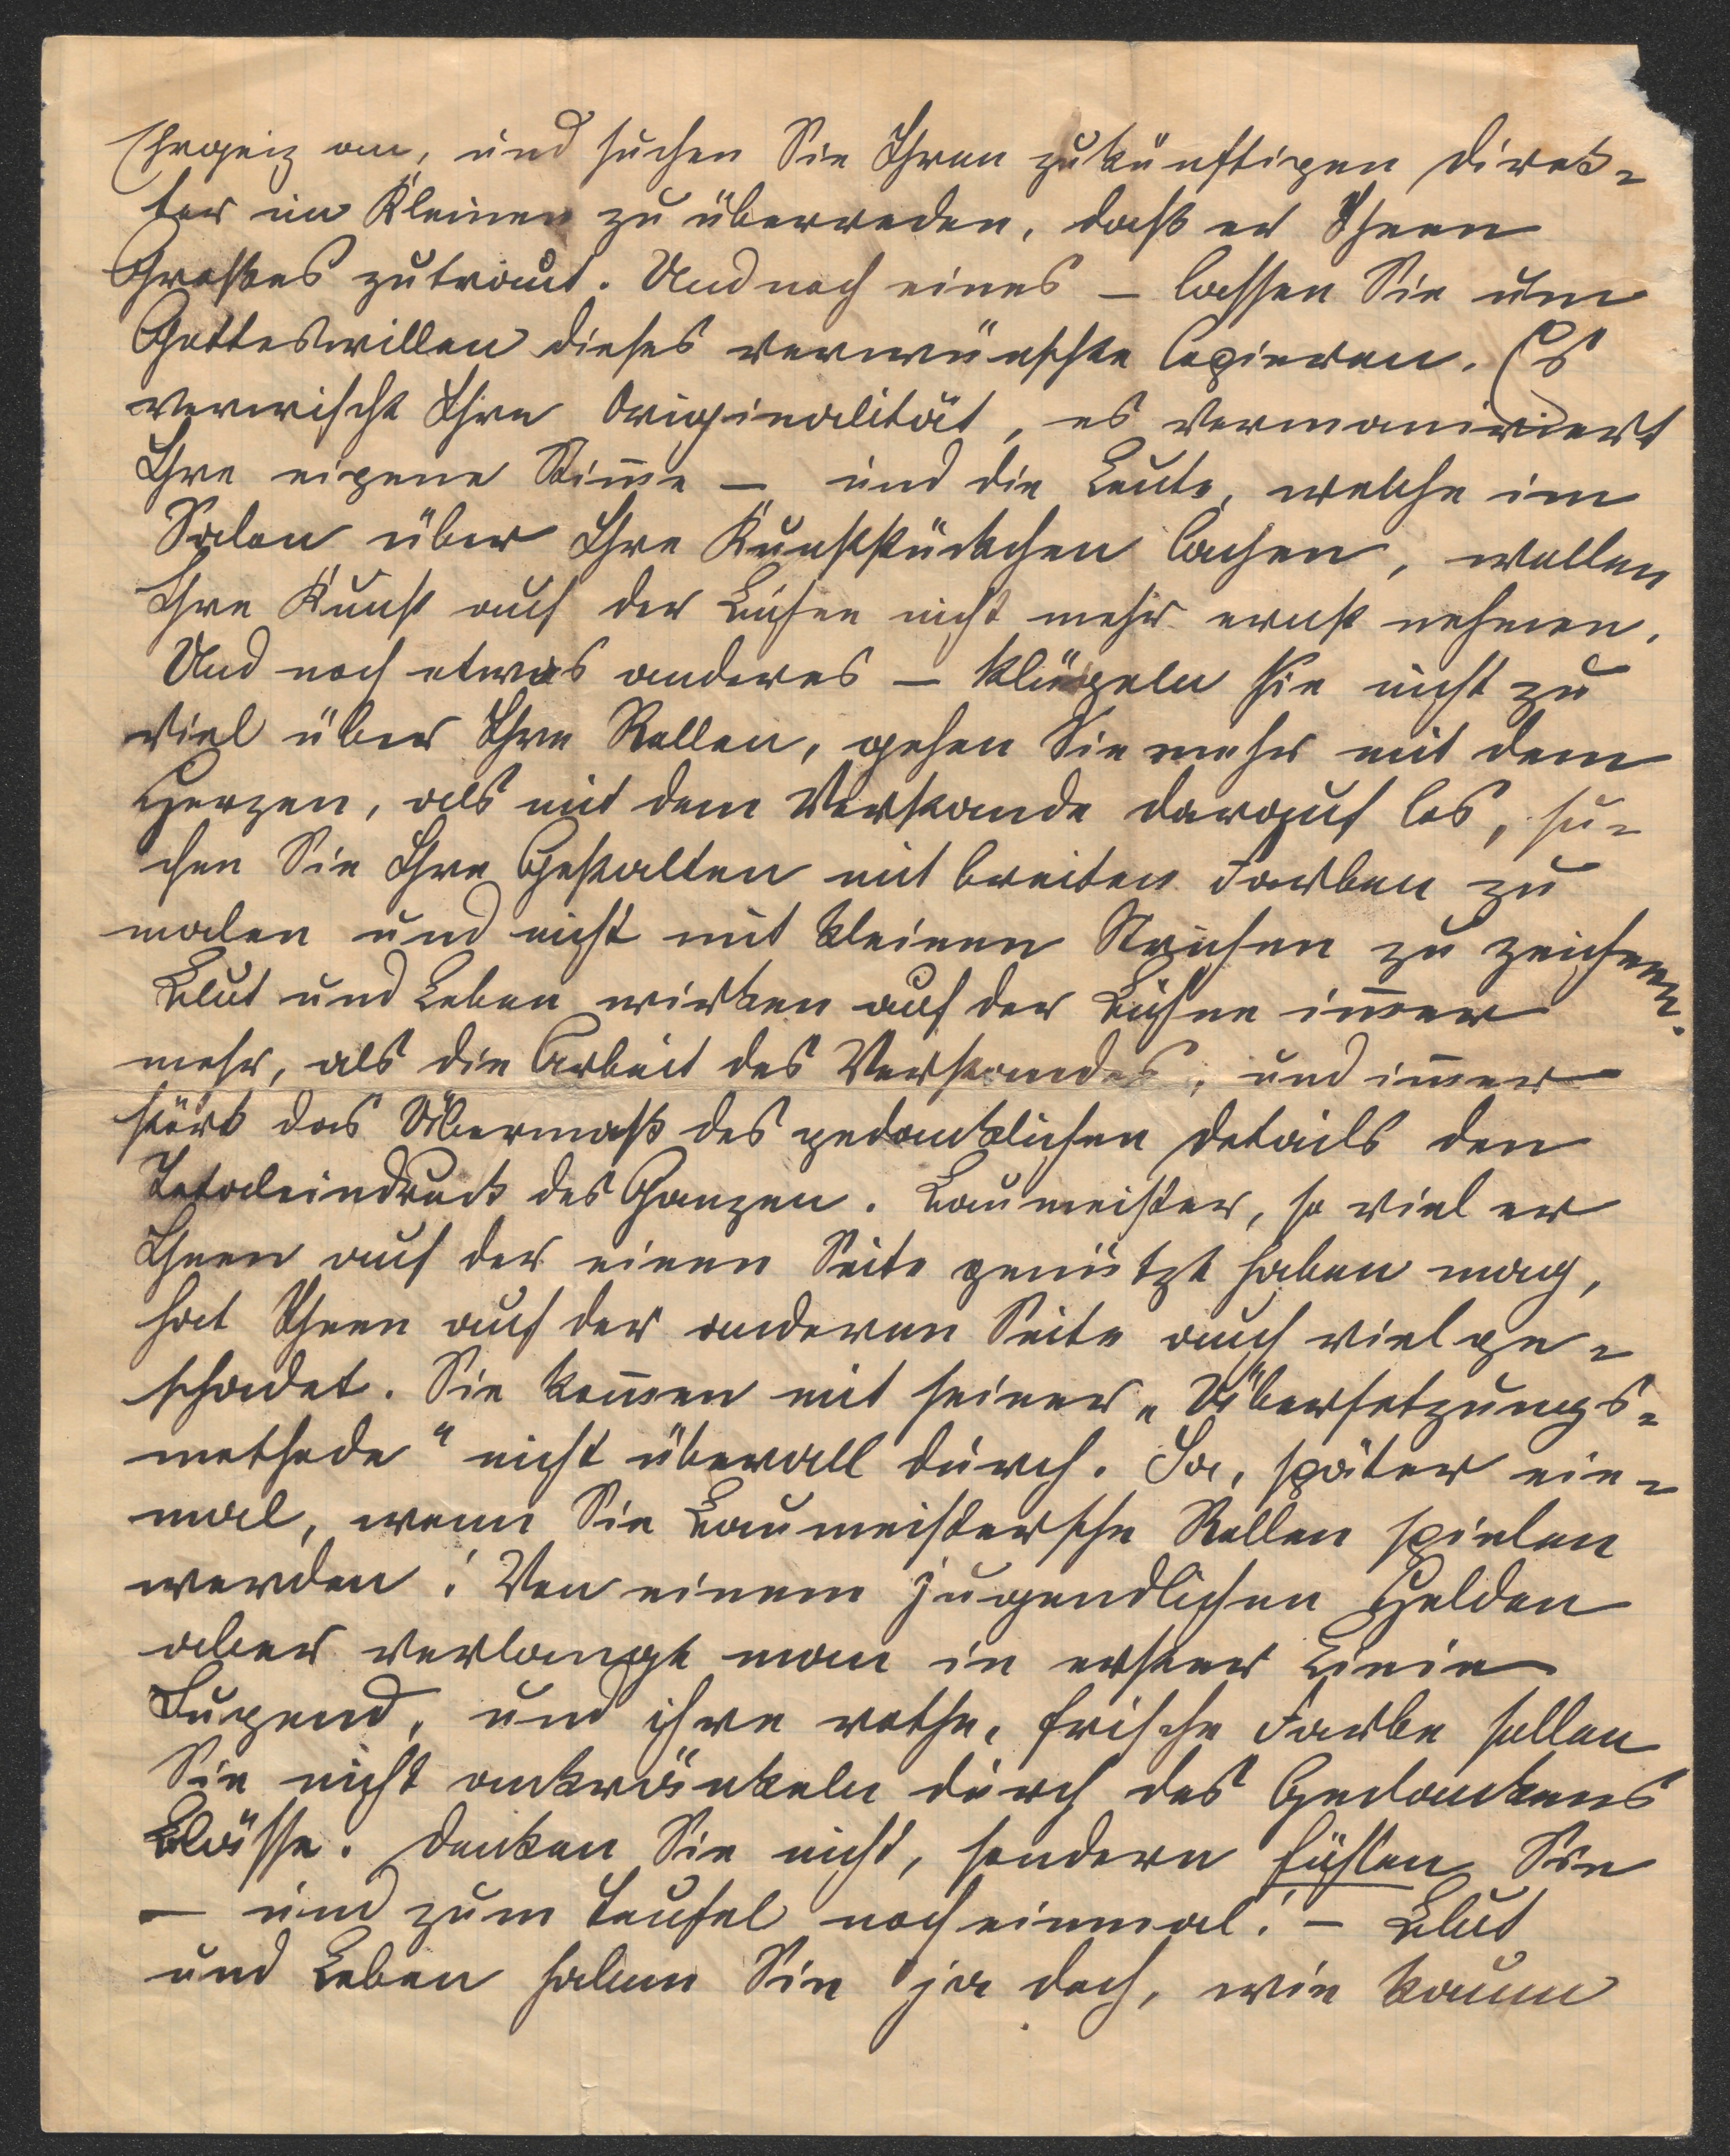 Ehrgeiz an, und suchen Sie Ihren zukünftigen Direk-
tor im Kleinen zu überreden, daß er Ihnen
Großes zutraut. Und noch eines – lassen Sie um
Gotteswillen dieses verwünschte Copieren. Es
verwischt Ihre Originalität, es vermaniriert
Ihre eigene Stim̄e – und die Leute, welche im
Salon über Ihre Kunststückchen lachen, wollen
Ihre Kunst auf der Bühne nicht mehr ernst nehmen.
Und noch etwas anderes – klügeln Sie nicht zu
viel über Ihre Rollen, gehen Sie mehr mit dem
Herzen, als mit dem Verstande darauf los, su-
chen Sie Ihre Gestalten mit breiten Farben zu
malen und nicht mit kleinen Strichen zu zeichnen.
Blut und Leben wirken auf der Bühne im̄er
mehr, als die Arbeit des Verstandes, und im̄er
stört das Übermaß des gedanklichen Details den
Totaleindruck des Ganzen. Baumeister, so viel er
Ihnen auf der einen Seite genützt haben mag,
hat Ihnen auf der anderen Seite auch viel ge-
schadet. Sie kom̄en mit seiner „Übersetzungs-
methode" nicht überall durch. Ja, später ein-
mal, wenn Sie Baumeistersche Rollen spielen
werden! Von einem jugendlichen Helden
aber verlangt man in erster Linie
Jugend, und ihre rothe, frische Farbe sollen
Sie nicht ankränkeln durch des Gedankens
Blässe. Denken Sie nicht, sondern fühlen Sie
– und zum Teufel noch einmal! – Blut
und Leben haben Sie ja doch, wie kaum